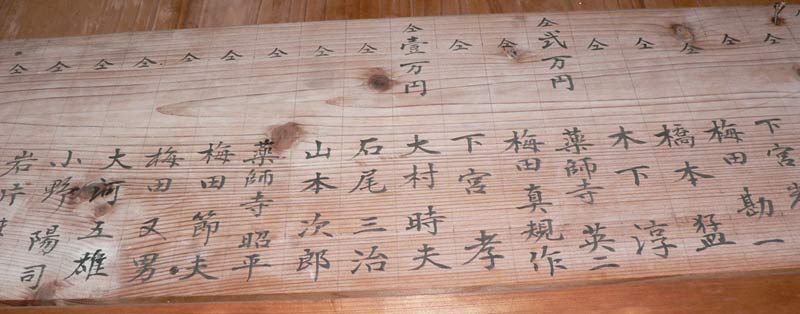 仝
仝
仝 下宮
仝 梅田 勘一
仝 橋本 猛
仝 木下 淳
仝弐万円 薬師寺 英二
仝 梅田 真規作
仝 下宮 孝
仝壹万円 大村 時夫
仝 石尾 三治
仝 山本 次郎
仝 薬師寺 昭平
仝 梅田 節夫
仝 梅田 又男
仝 大河 五雄
仝 小野 陽司
仝 岩片
仝